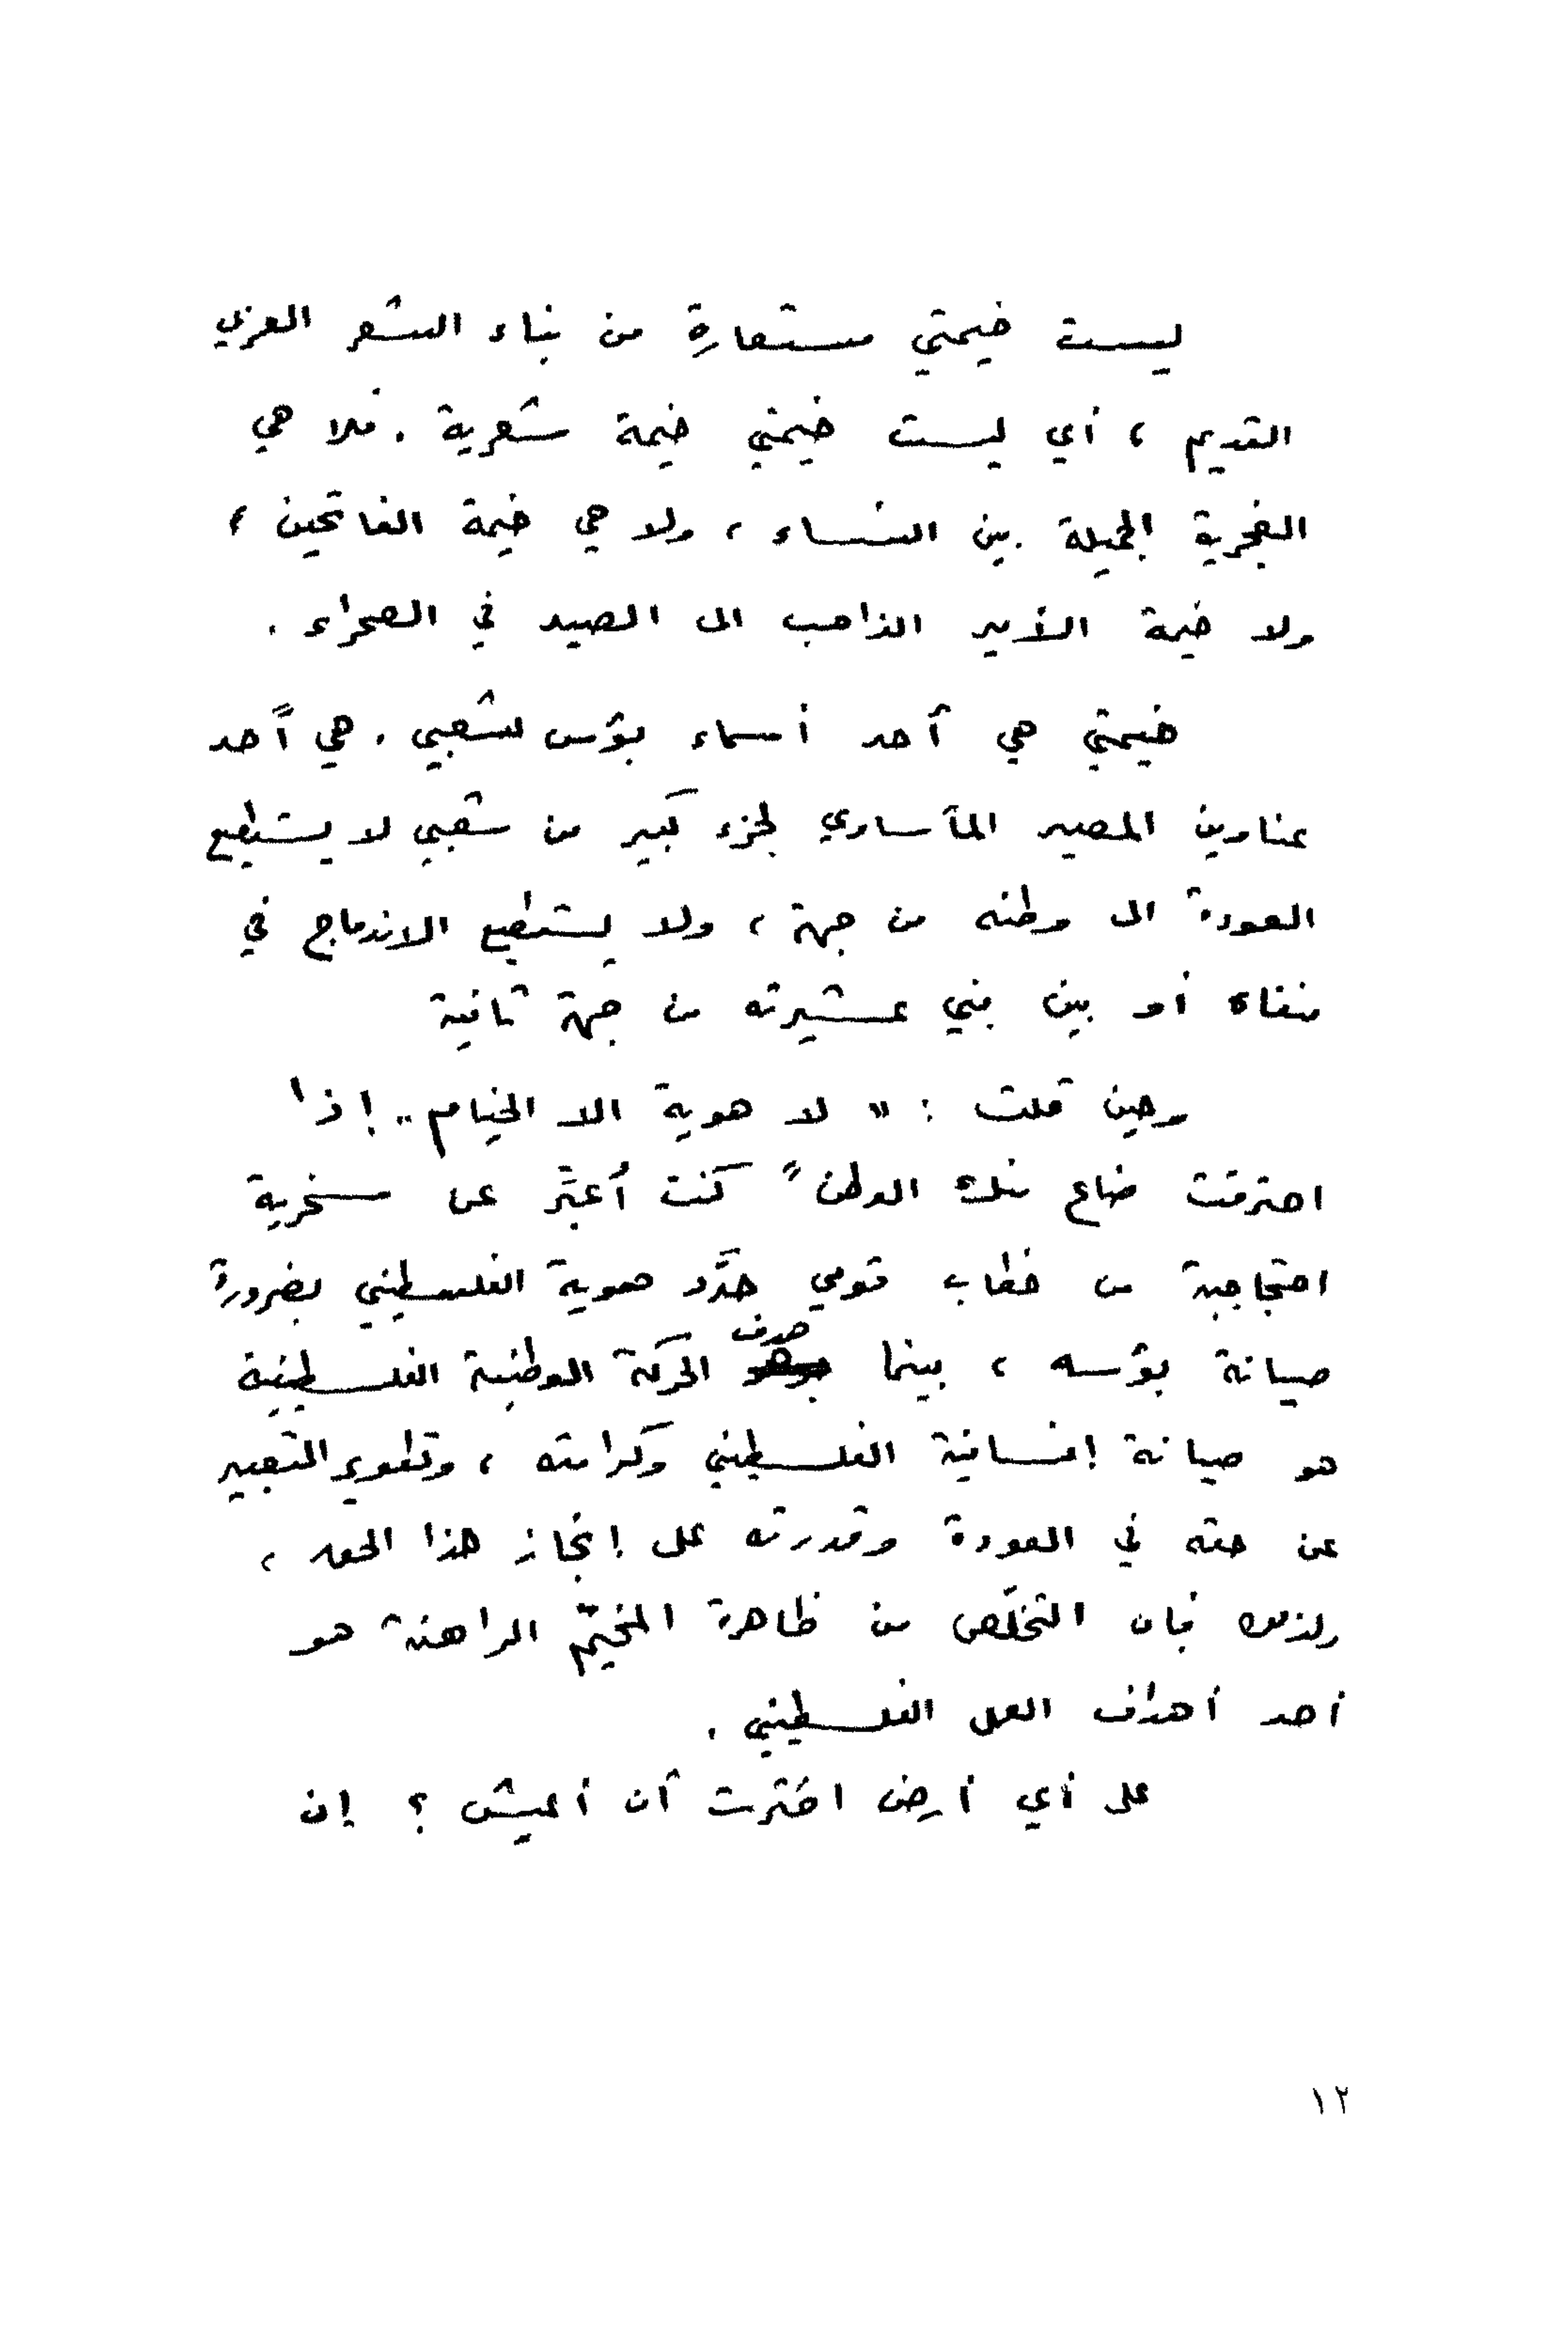 ليست خيمتي مستعارة من بناء الشعر العربي
القديم ، أي ليست خيمتي خيمة شعرية . فلا هي
الغجرية الجميلة بين النساء ، ولا هي خيمة الفاتحين ،
ولا خيمة الأمير الذاهب الى الصيد في الصحراء .
خيمتي هي أحد أسماء بؤس شعبي . هي أحد
عناوين المصير المأساوي لجزء كبير من شعبي لا يستطيع
العودة الى وطنه من جهة ، ولا يستطيع الاندماج في
منفاه أو بين بني عشيرته من جهة ثانية
وحين قلت : " لا هوية الا الخيام .. إذا
احترقت ضاع منك الوطن " كنت أُعبّر عن سخرية
احتجاجية من خطاب قومي حدَّد هوية الفلسطيني بضرورة
صيانة بؤسه ، بينما هدف الحركة الوطنية الفلسطينية
هو صيانة إنسانية الفلسطيني وكرامته ، وتطوير التعبير
عن حقه في العودة وقدرته على إنجاز هذا الحق ،
ولذلك فإن التخلّص من ظاهرة المخيّم الراهنة هو
أحد أهداف العمل الفلسطيني .
على أي أرض اخترت أن أعيش ؟ إن
١٢